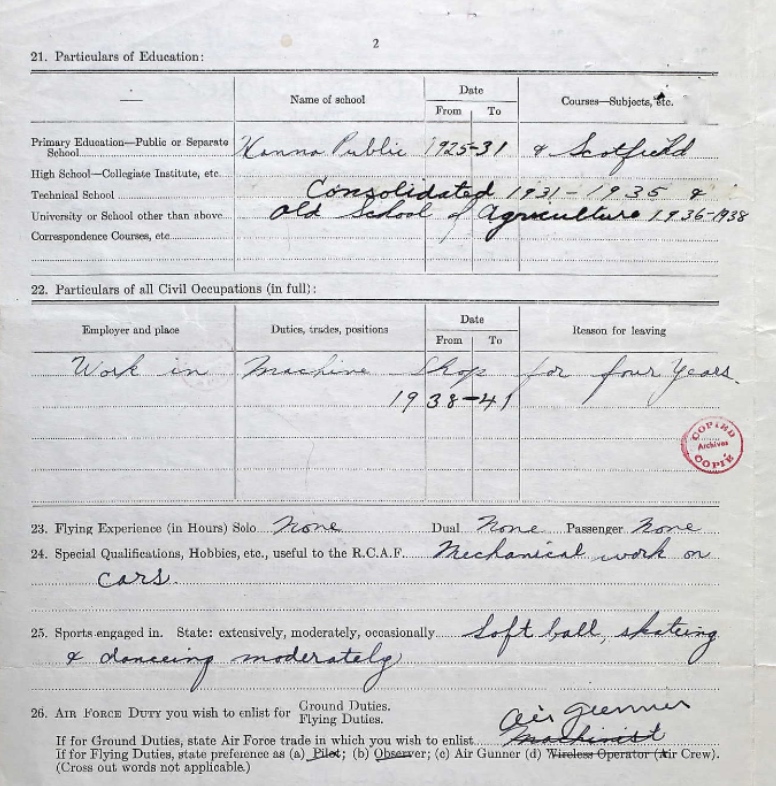 2
21. Particulars of Education:
Name of school
Date
From To
Courses—Subjects, etc.
Primary Education—Public or Separate
School
Hanna Public 1925-31 & Scotfield
High School—Collegiate Institute, etc.
Technical School
Consolidated 1931-1935 &
University or School other than above
Old School of Agriculture 1936-1938
Correspondence Courses, etc
22. Particulars of all Civil Occupations (in full):
Employer and place
Duties, trades, positions
Date
From To
Reason for leaving
Work in Machine Shop for four Years.
1938-41
COPIED
Archives
COPIÉ
23. Flying Experience (in Hours) Solo None Dual None Passenger None
24. Special Qualifications, Hobbies, etc., useful to the R.C.A.F. Mechanical work on
cars.
25. Sports engaged in. State: extensively, moderately, occasionally Soft ball, skateing
& danceing moderately
26. AIR FORCE DUTY you wish to enlist for Ground Duties.
Flying Duties.
Air Gunner
If for Ground Duties, state Air Force trade in which you wish to enlist Machinist
If for Flying Duties, state preference as (a) Pilot; (b) Observer; (c) Air Gunner (d) Wireless Operator (Air Crew).
(Cross out words not applicable.)